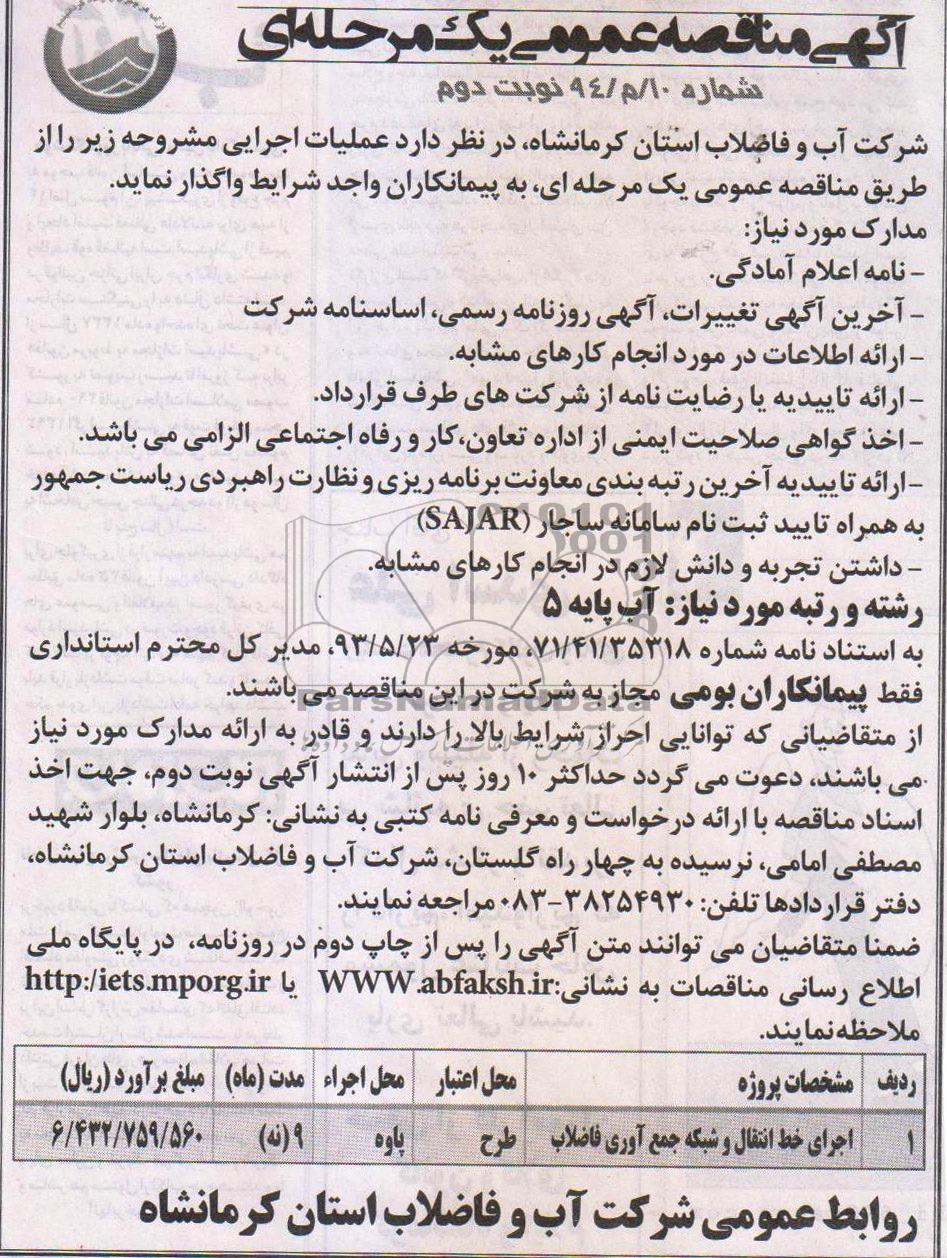 آگهی مناقصه عمومی یک مرحله‌ای
شماره ۱۰/م/۹۴ نوبت دوم
شرکت آب و فاضلاب استان کرمانشاه، در نظر دارد عملیات اجرایی مشروحه زیر را از
طریق مناقصه عمومی یک مرحله ای، به پیمانکاران واجد شرایط واگذار نماید.
مدارک مورد نیاز:
- نامه اعلام آمادگی.
- آخرین آگهی تغییرات، آگهی روزنامه رسمی، اساسنامه شرکت
- ارائه اطلاعات در مورد انجام کارهای مشابه.
- ارائه تاییدیه یا رضایت نامه از شرکت های طرف قرارداد.
- اخذ گواهی صلاحیت ایمنی از اداره تعاون،کار و رفاه اجتماعی الزامی می باشد.
- ارائه تاییدیه آخرین رتبه بندی معاونت برنامه ریزی و نظارت راهبردی ریاست جمهور
به همراه تایید ثبت نام سامانه ساجار (SAJAR)
- داشتن تجربه و دانش لازم در انجام کارهای مشابه.
رشته و رتبه مورد نیاز: آب پایه ۵
به استناد نامه شماره ۷۱/۴۱/۳۵۳۱۸، مورخه ۹۳/۵/۲۳، مدیر کل محترم استانداری
فقط پیمانکاران بومی مجاز به شرکت در این مناقصه می باشند.
ParsNamadData
از متقاضیانی که توانایی احراز شرایط بالا را دارند و قادر به ارائه مدارک مورد نیاز
می باشند، دعوت می گردد حداکثر ۱۰ روز پس از انتشار آگهی نوبت دوم، جهت اخذ
اسناد مناقصه با ارائه درخواست و معرفی نامه کتبی به نشانی: کرمانشاه، بلوار شهید
مصطفی امامی، نرسیده به چهار راه گلستان، شرکت آب و فاضلاب استان کرمانشاه،
دفتر قراردادها تلفن: ۳۸۲۵۴۹۳۰-۰۸۳ مراجعه نمایند.
ضمنا متقاضیان می توانند متن آگهی را پس از چاپ دوم در روزنامه، در پایگاه ملی
اطلاع رسانی مناقصات به نشانی:WWW.abfaksh.ir یا http:/iets.mporg.ir
ملاحظه نمایند.
ردیف مشخصات پروژه محل اعتبار محل اجراء مدت (ماه) مبلغ برآورد (ریال)
۱ اجرای خط انتقال و شبکه جمع آوری فاضلاب طرح پاوه ۹ (نه) ۶/۴۳۲/۷۵۹/۵۶۰
روابط عمومی شرکت آب و فاضلاب استان کرمانشاه